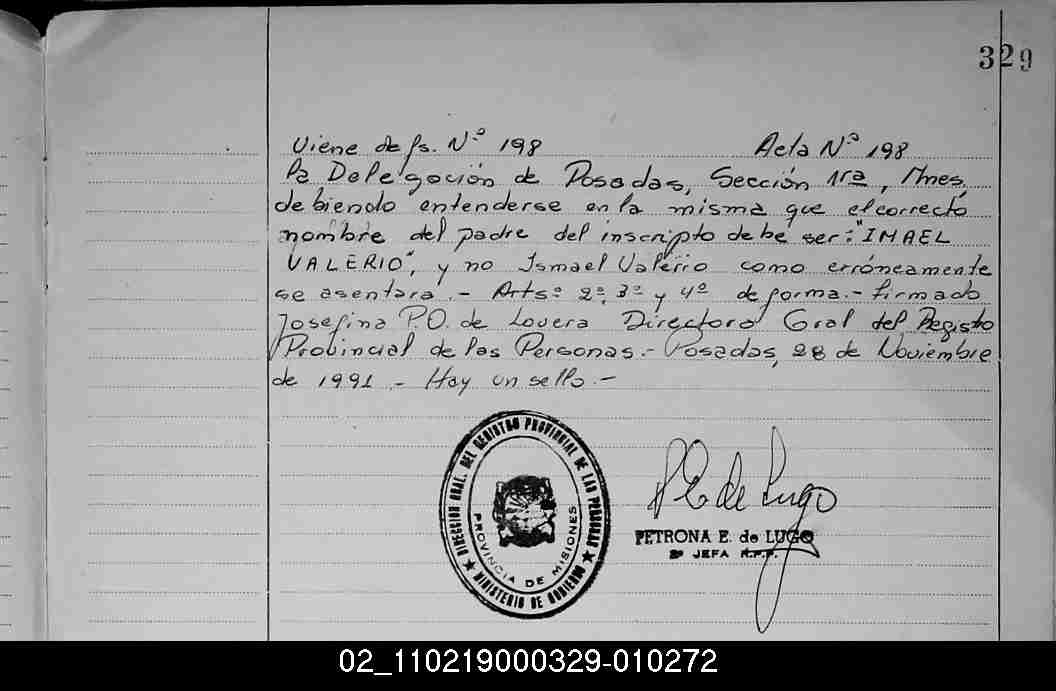 329
Viene de fs. Nº 198 Acta Nº 198
la Delegación de Posadas, Sección 1ra, Mnes,
debiendo entenderse en la misma que el correcto
nombre del padre del inscripto debe ser: "IMAEL
VALERIO", y no Ismael Valerio como erróneamente
se asentara.- Arts. 2º, 3º y 4º de forma.- Firmado
Josefina P.O. de Lovera Directora Gral del Registo
Provincial de las Personas.- Posadas, 28 de Noviembre
de 1991.- Hay un sello.-
DIRECCION GRAL. DEL REGISTRO PROVINCIAL DE LAS PERSONAS
PROVINCIA DE MISIONES
MINISTERIO DE GOBIERNO
P E de Lugo
PETRONA E. de LUGO
2ª JEFA R.P.P.
02_110219000329-010272